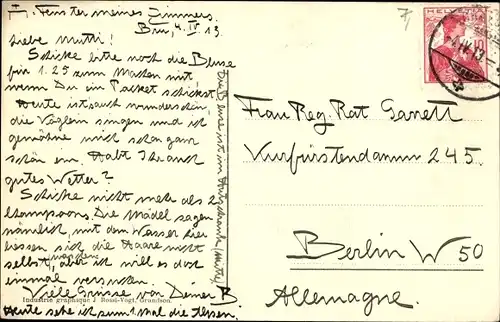 F. Fenster meines Zimmers.
4. IV 13.
Liebe Mutti!
Schicke bitte noch die Bluse
für 1.25 zum Machen mit
wenn Du ein Packet schickst.
Heute ist auch wunderschön,
die Vöglein singen und ich
gewöhne mich schon ganz
schön ein. Habt Ihr auch
gutes Wetter?
Schicke nicht mehr als 2
Champoons. Die Mädel sagen
nämlich, mit dem Wasser hier
liessen sich die Haare nicht
selbst waschen, aber ich will es doch
einmal versuchen.
Viele Grüsse von Deiner B
Heute sehe ich zum 1. Mal die Alpen.
Die Bluse ist im
Industrie graphique J Rossi-Vogt, Grandson.
HELVETIA
10
Frau Reg. Rat Garett
Kurfürstendamm 245
Berlin W 50
Allemagne.